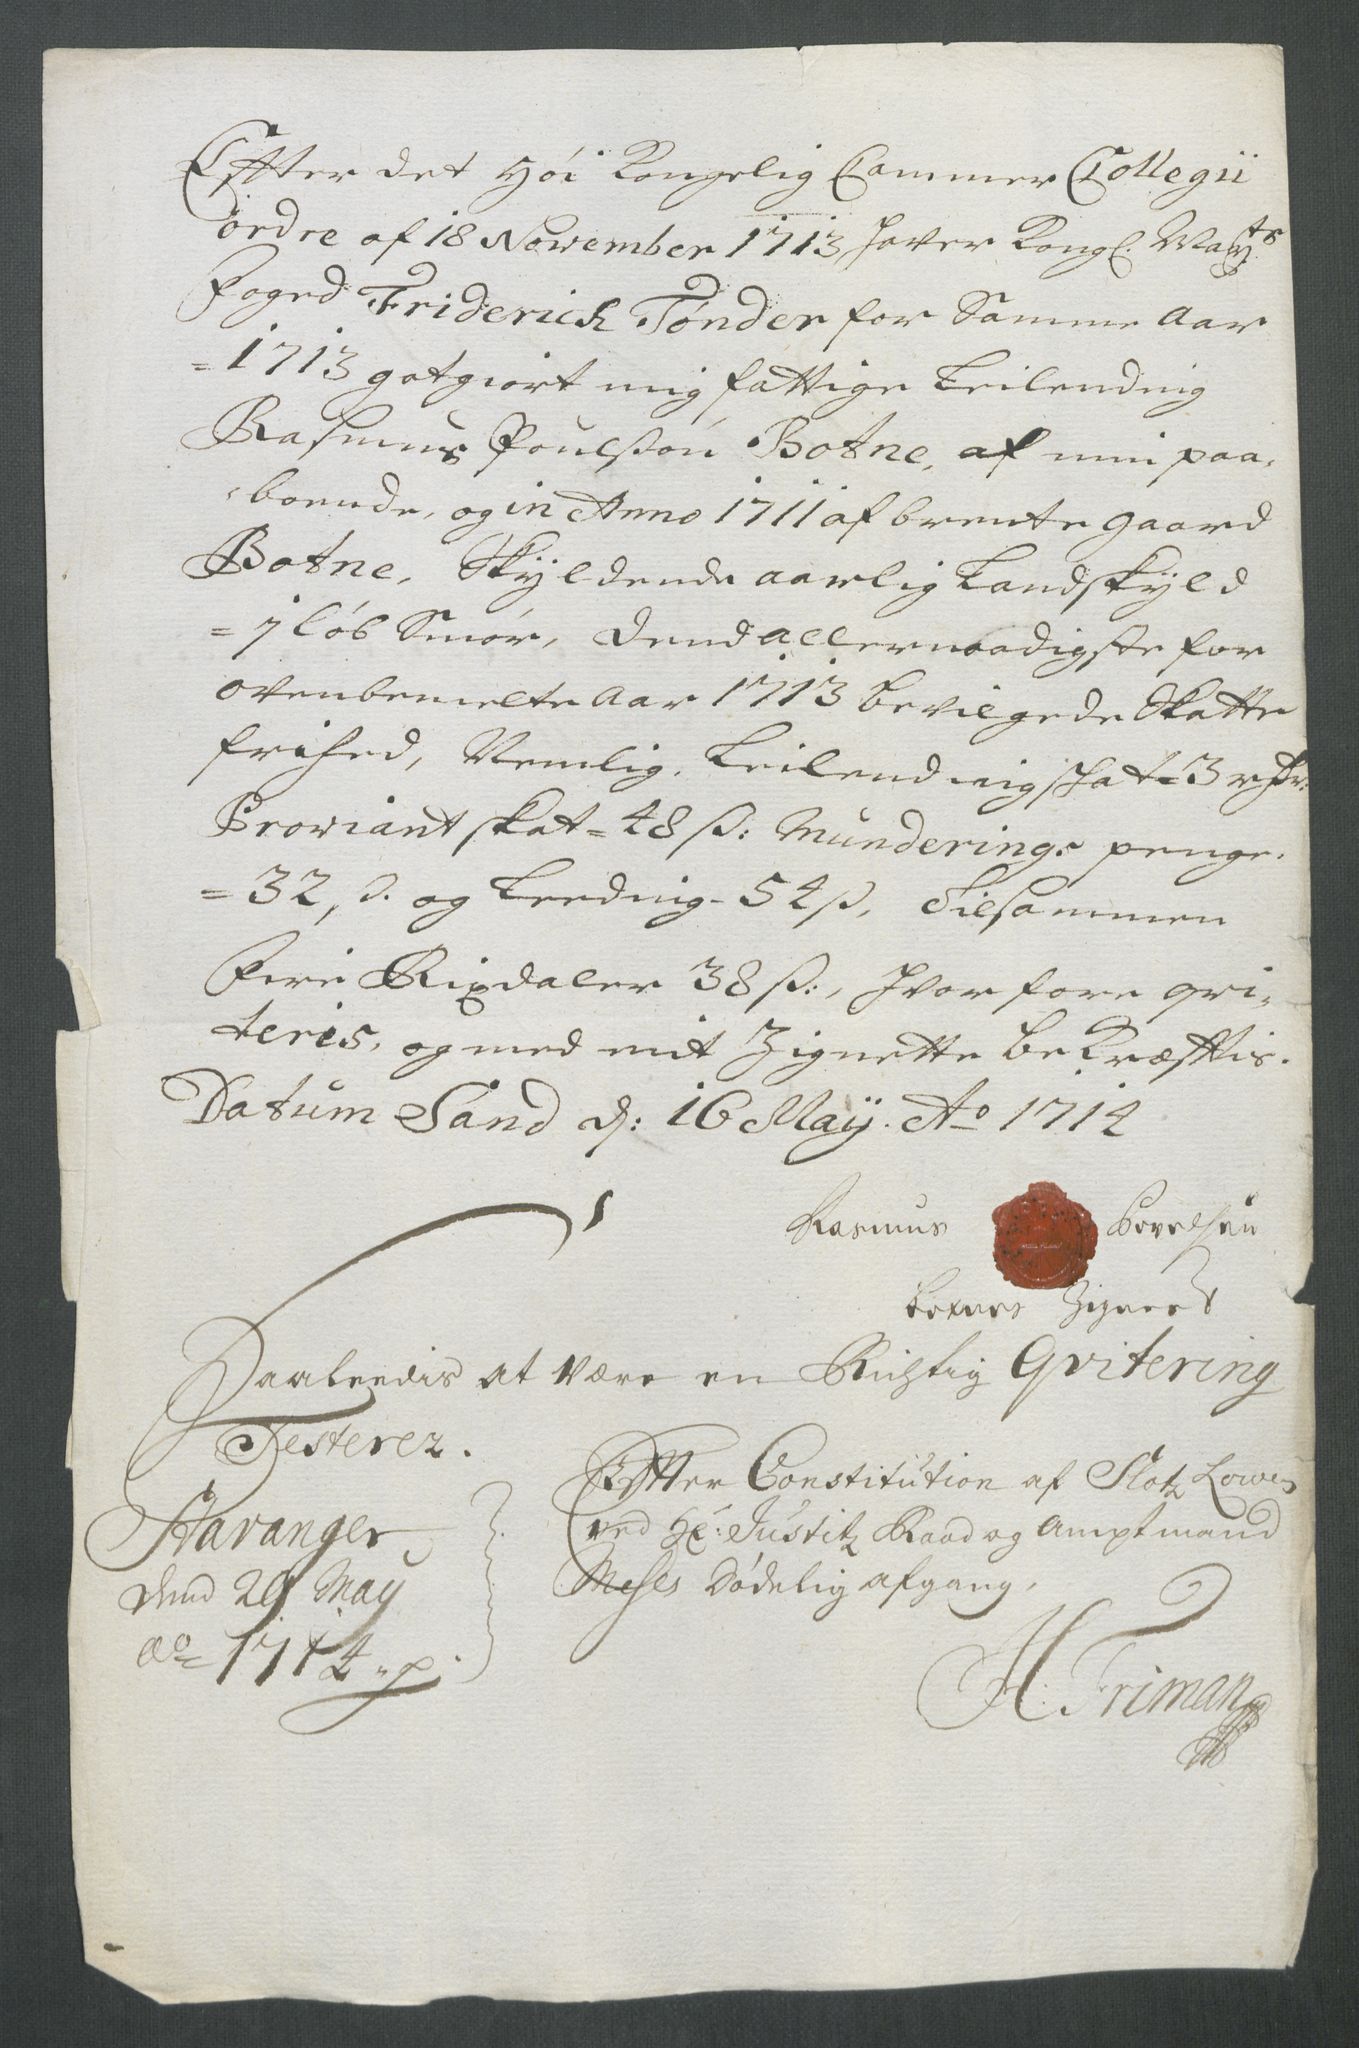 Effter det Höi Kongelig Cammer Collegii
ordre af 18 November 1713 haver Kongl. Mayts
foged Friderich Tønder for Samme Aar
= 1713 gotgiort mig fattige Leilending
Rasmus Poulsøn Botne, af min paa,
boende, og in Anno 1711 afbrente gaard
Botne, Skyldende aarlig Landskyld
= 1 löb Smör, dend allernaadigste for
ovenbemelte Aar 1713 bevilgede Skatte
frihed, Nemlig, Leilendingskat = 3 rdr:
Proviantskat = 48 ß: Munderings penge
= 32 ß. og Leeding - 54 ß, Tilsammen
Fire Rixdaler 38 ß:, hvor fore qvi,
teris, og med mit Zignette bekræfftis.
Datum Sand d: 16 Maÿ. Ao 1714
Rasmus Povelsøn
Botnes Zignet
Saaleedis at være en Richtig Qvitering
Testerer.
Effter Constitution af Slotz Lowen
ved Hr: Justitz Raad og Amptmand
Meses Dödelig afgang,
Stavanger
dend 29 May
ao = 1714 p.
H. Friman